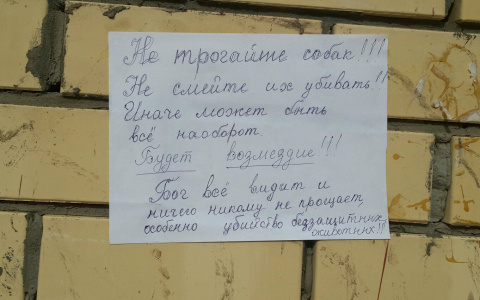 Не трогайте собак!!!
Не смейте их убивать!!
Иначе может быть
всё наоборот.
Будет возмездие!!!
Бог всё видит и
ничего никому не прощает,
особенно убийство беззащитных
животных!!!